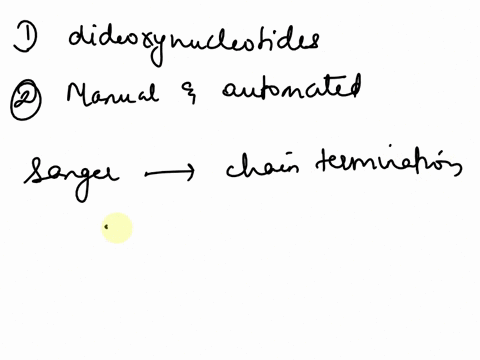 1) dideoxynucleotides
2 Manual & automated
Sanger → chain termination